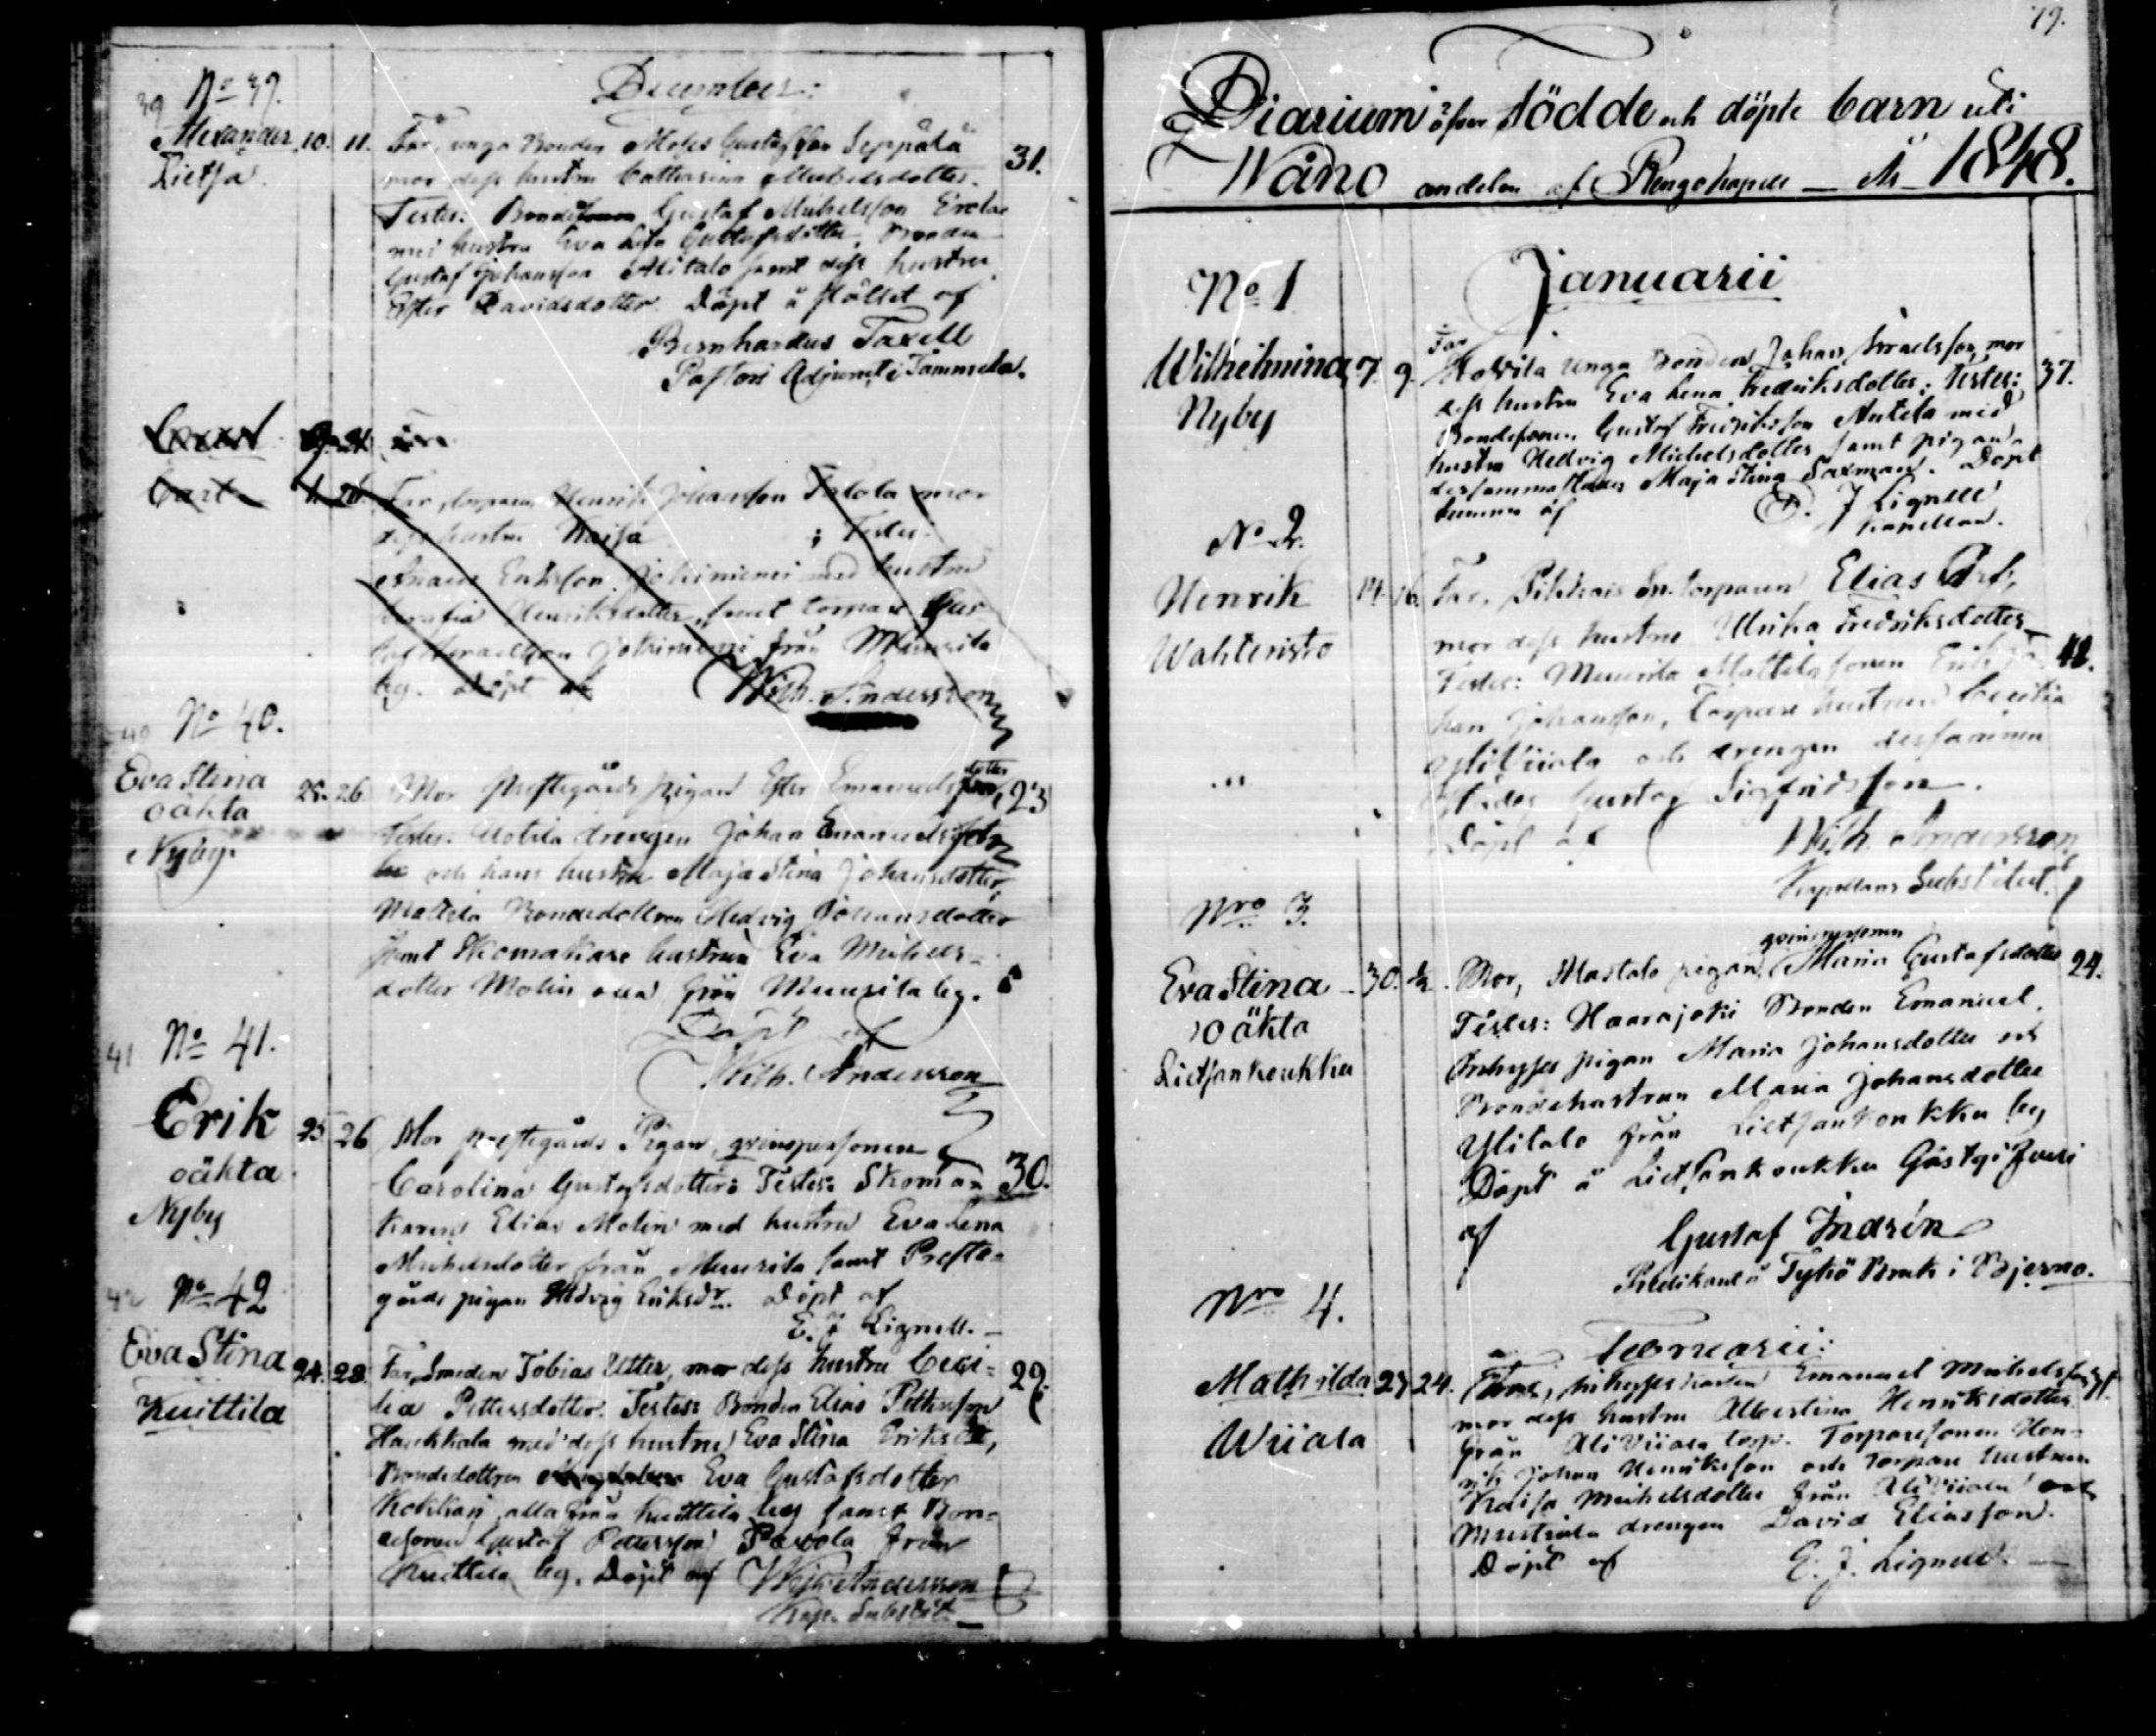 December:
39 No 39.
Alexander 10. 11. Far, unga Bonden Moses Gustafsson Seppälä 31.
Lietsa mor dess hustru Catharina Michelsdotter.
Testes: Gustaf Michelsson
med hustru Eva Lisa Gustafsdotter, Bonden
Gustaf Johansson Alitalo samt dess hustru
Ester Davidsdotter. Döpt å stället af
Bernhardus Taxell
Pastors Adjunct i Tammela.
Carl Far, torparen Henrik Johansson Talola mor
dess hustru Kaisa ; Testes:
Ananias Eriksson Jokiniemi med hustru
Serafia Henriksdotter, samt torpare Gus-
taf Israelsson Jokiniemi från Muurila
by. Döpt af Wilh. Andersson
40 No 40.
Eva Stina 25. 26. Mor Prestegårds pigan Ester Emanuels dotter, 23
oäkta Testes: Uotila drengen Johan Emanuelsson
Nyby och hans hustru Maja Stina Johansdotter,
Mattila Bondedottren Hedvig Johansdotter
samt Skomakare hustrun Eva Michels-
dotter Molin alla från Muurila by.
Döpt af
Wilh. Andersson
41 No 41.
Erik 25 26 Mor Prestegårds Pigan, qvinspersonen
oäkta Carolina Gustafsdotter: Testes: Skoma- 30.
Nyby karen Elias Molin med hustru Eva Lena
Michelsdotter från Muurila samt Preste-
gårds pigan Hedvig Eriksdr. Döpt af
E. J Lignell.
42 No 42
Eva Stina 24. 28. Far, Smeden Tobias Utter, mor dess hustru Ceci- 29.
Kuittila lia Pettersdotter. Testes: Bonden Elias Pettersson
Haukkala med dess hustru Eva Stina Eriksdr,
Bondedottren Eva Gustafsdotter
Kokkoi, alla från Kuittila by samt Bon-
desonen Gustaf Pettersson Pavola från
Kuittila by. Döpt af Wilh Andersson
Kap. Substit.
79.
Diarium öfver födde och döpte barn uti
Wåno andelen af Rengo kapell — År 1848.
Januarii
No 1
Wilhelmina 7. 9. Far Uotila unga Bonden Johan Israelsson, mor 37.
Nyby dess hustru Eva Lena Fredriksdotter; Testes:
Bondesonen Gustaf Fredriksson Antila med
hustru Hedvig Michelsdotter samt pigan
dersammastädes Maja Stina Saxman. Döpt
af E. J Lignell
Kapellan.
No 2.
Henrik 14. 16. Far, Elias
Wahteristo mor dess hustru Ulrika Fredriksdotter 42.
Testes: Muurila Mattila sonen Erik Jo-
han Johansson, Torpare hustrun Cecilia
YliViiala och drengen dersammas
städes Gustaf Sigfridsson.
Döpt af Wilh. Andersson
Kapellans Substitut.
Nro 3.
Eva Stina 30. ½. Mor, Mastalo pigan, qvinspersonen Maria Gustafsdotter 24.
oäkta Testes: Haarajoki Bonden Emanuel,
Lietsankoukku Inhyses pigan Maria Johansdotter och
Bondehustrun Maria Johansdotter
Ylitalo från Lietsankoukku by
Döpt å Lietsankoukku Gästgifveri
af Gustaf Indrén
Predikant å Tykö Bruk i Bjerno.
Februarii:
Nro 4.
Mathilda 23 24. Far, inhyses Emanuel Michelsson
Wiiala mor dess hustru Albertina Henriksdotter
från AliViiala torp. Torparesonen Hen-
rik Johan Henriksson och Torpare hustrun
Kaisa Michelsdotter från AliViiala och
Mustiala drengen David Eliasson.
Döpt af E. J. Lignell.